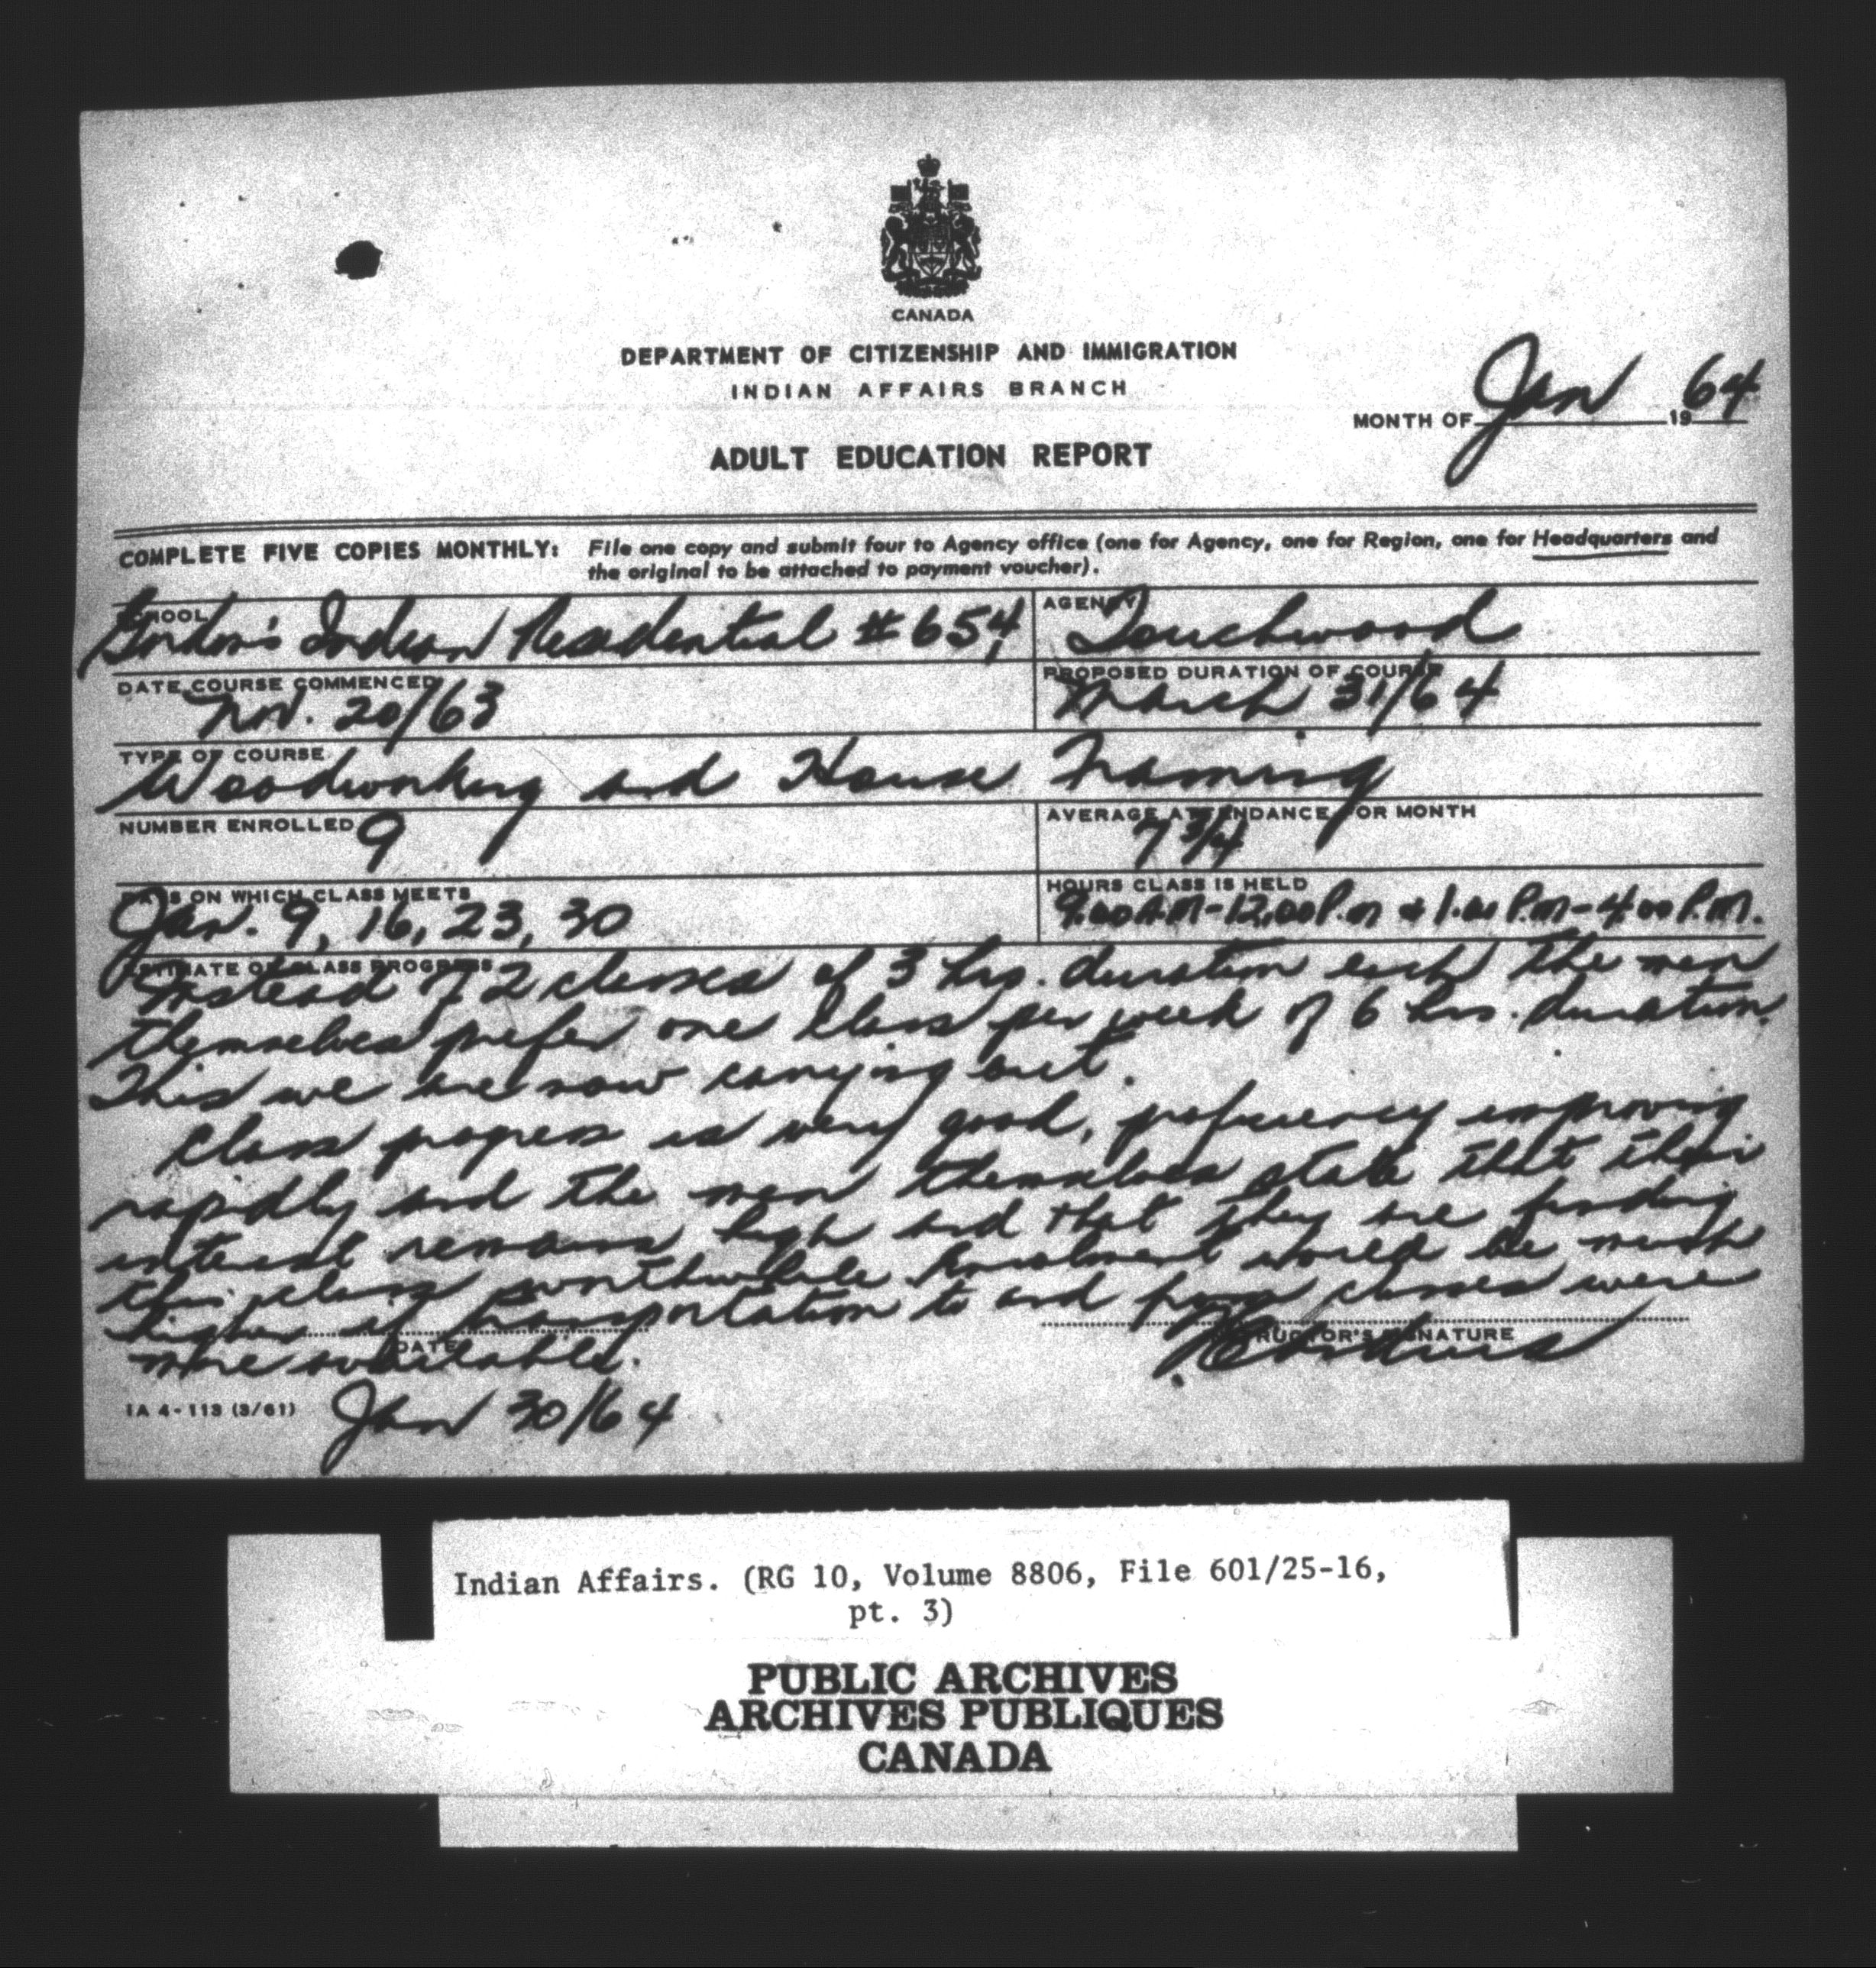 CANADA
DEPARTMENT OF CITIZENSHIP AND IMMIGRATION
INDIAN AFFAIRS BRANCH
MONTH OF Jan 1964
ADULT EDUCATION REPORT
COMPLETE FIVE COPIES MONTHLY: File one copy and submit four to Agency office (one for Agency, one for Region, one for Headquarters and
the original to be attached to payment voucher).
SCHOOL Gordon's Indian Residential #654,
AGENCY Touchwood
DATE COURSE COMMENCED Nov. 20/63
PROPOSED DURATION OF COURSE March 31/64
TYPE OF COURSE Woodworking and House Framing
NUMBER ENROLLED 9
AVERAGE ATTENDANCE FOR MONTH 7 3/4
DAYS ON WHICH CLASS MEETS Jan. 9, 16, 23, 30
HOURS CLASS IS HELD 9.00 A.M - 12.00 P.m & 1.00 P.m - 4.00 P.M.
ESTIMATE OF CLASS PROGRESS
Instead of 2 classes of 3 hrs. duration each the men
themselves prefer one class per week of 6 hrs. duration.
This we are now carrying out.
Class progress is very good, proficiency improving
rapidly and the men themselves state that their
interest remains high and that they are finding
this class worthwhile Enrolment would be much
higher if transportation to and from classes were
more available.
DATE
INSTRUCTOR'S SIGNATURE
IA 4-113 (3/61)
Jan 30/64
Indian Affairs. (RG 10, Volume 8806, File 601/25-16,
pt. 3)
PUBLIC ARCHIVES
ARCHIVES PUBLIQUES
CANADA